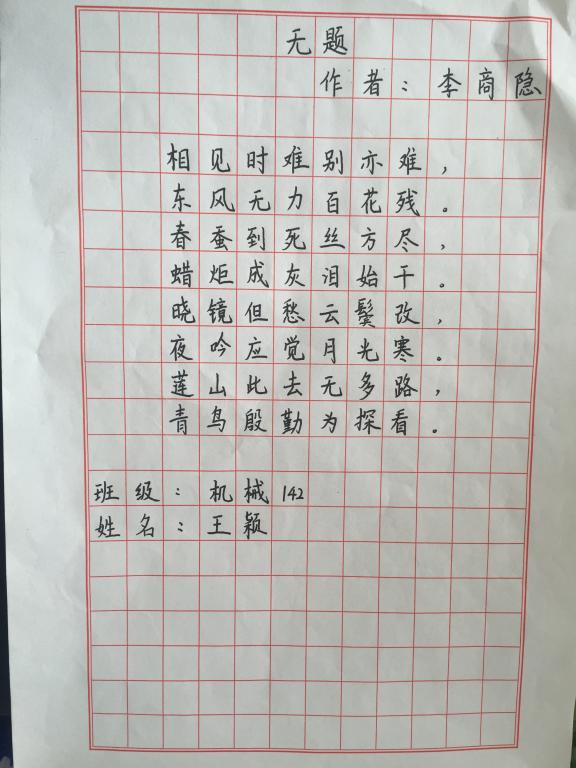 无题
作者：李商隐
相见时难别亦难，
东风无力百花残。
春蚕到死丝方尽，
蜡炬成灰泪始干。
晓镜但愁云鬓改，
夜吟应觉月光寒。
莲山此去无多路，
青鸟殷勤为探看。
班级：机械142
姓名：王颖